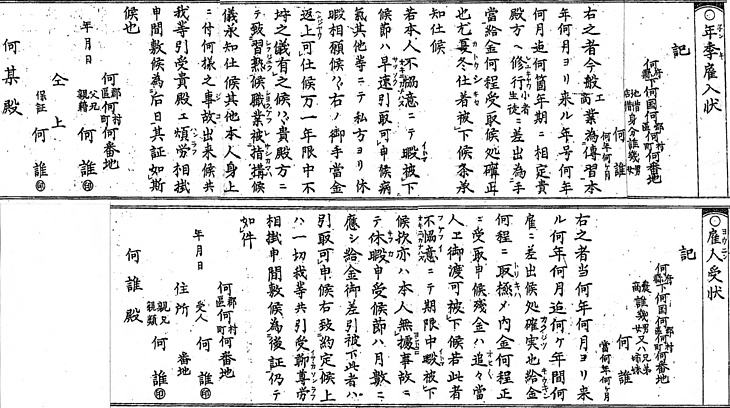 ○年季雇入状
記
何府縣下何國何郡區何村町何番地
何誰
何年何ヶ月
右之者今般工商業為傳習本
年何月ヨリ来ル年号何年
何月迠何箇年期ニ相定貴
殿方ヘ修行生徒差出為手
當給金何程受取候処確正
也尤夏冬仕着被下候条承
知仕候
若本人不愜意ニテ暇被下
候節ハ早速引取可申候病
氣其他等ニテ私方ヨリ休
暇相願候ハヽ右ノ御手當金
返上可仕候万一年限中不
埒之儀有之候ハヽ貴殿方ニ
テ致習熟候職業被指搆候
儀承知仕候其他本人身上
ニ付何様之事故出来候共
我等引受貴殿ェ煩労相掛
申間敷候為后日其証如斯
候也
年月日
何郡區何村町何番地
父兄親籍 何誰㊞
仝上
保証 何誰㊞
何某殿
○雇人受状
記
何府縣下何国何郡區何村町何番地
農商誰幾男女又ハ兄弟姉妹
何誰
當何年何ヶ月
右之者当何年何月ヨリ来
ル何年何月迠何ケ年間何
雇ニ差出候処確実也給金
何程ニ取極メ内金何程正
ニ受取申候残金ハ追々當
人ェ御渡可被下候若此者
不愜意ニテ期限中暇被下
候欤亦ハ本人無據事故ニ
テ休暇申受候節ハ月數ニ
應シ給金御差引被下此者ハ
引取可申候右致約定候上
ハ一切我等共引受聊尊労
相掛申間敷候為後証仍テ
如件
年月日
何郡區何村町何番地
受人 何誰㊞
住所 番地
親兄親類 何誰㊞
何誰殿